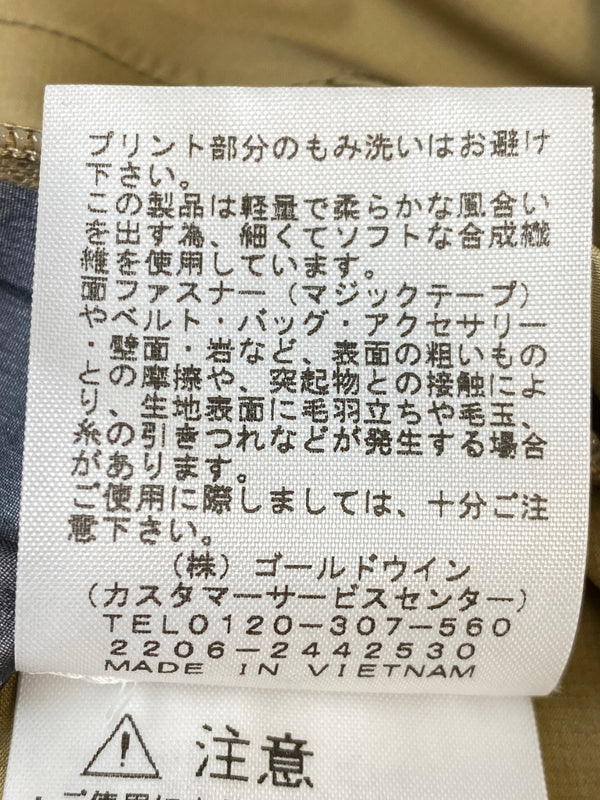 プリント部分のもみ洗いはお避け
下さい。
この製品は軽量で柔らかな風合い
を出す為、細くてソフトな合成繊
維を使用しています。
面ファスナー（マジックテープ）
やベルト・バッグ・アクセサリー
・壁面・岩など、表面の粗いもの
との摩擦や、突起物との接触によ
り、生地表面に毛羽立ちや毛玉、
糸の引きつれなどが発生する場合
があります。
ご使用に際しましては、十分ご注
意下さい。
（株）ゴールドウイン
（カスタマーサービスセンター）
TEL0120-307-560
2206-2442530
MADE IN VIETNAM
注意